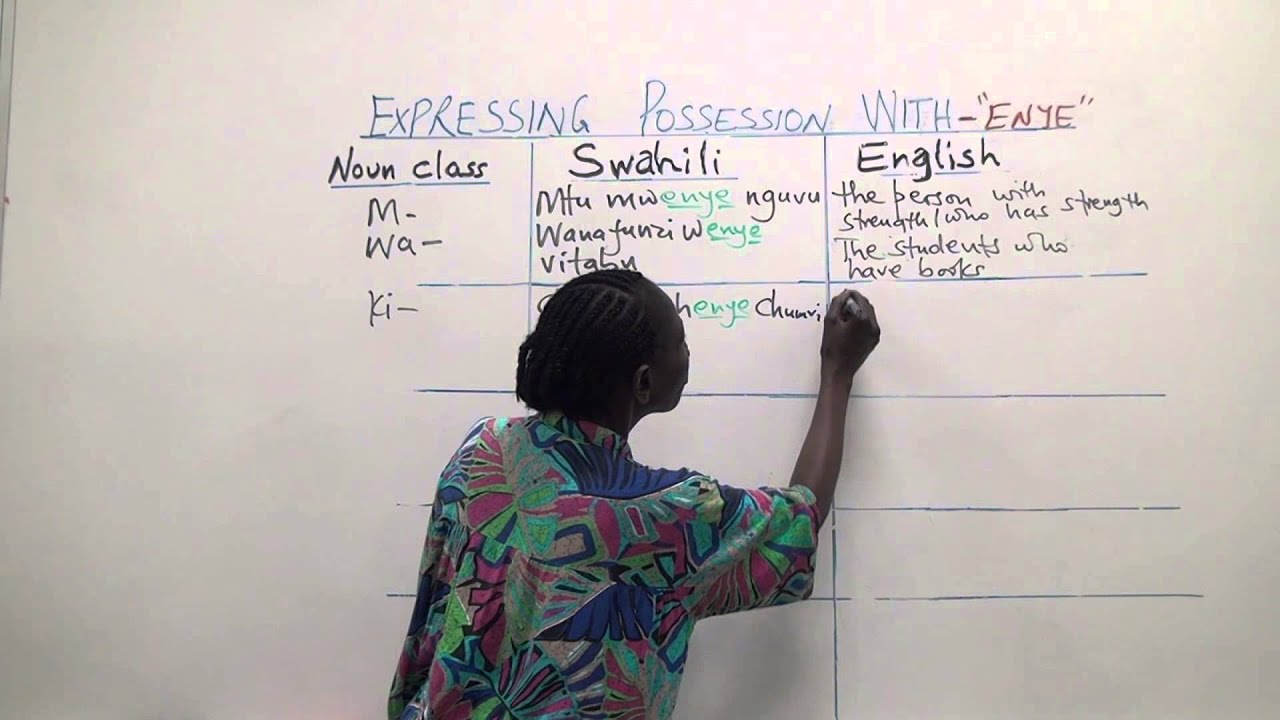 EXPRESSING POSSESSION WITH -"ENYE"
Noun class Swahili English
M- Mtu mwenye nguvu the person with
strength/who has strength
Wa- Wanafunzi wenye The students who
vitabu have books
Ki- henye Chumvi